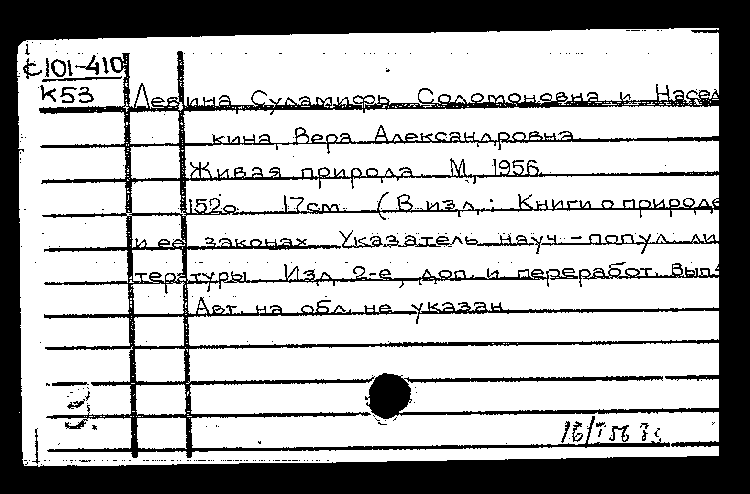 С 101-410
К53
Левина, Суламифь Соломоновна и Насед
кина, Вера Александровна
Живая природа М., 1956.
152с. 17см. (В изд.: Книги о природе
и ее законах. Указатель науч.-попул. ли
тературы. Изд. 2-е, доп. и переработ. Вып.
Авт. на обл. не указан.
З.